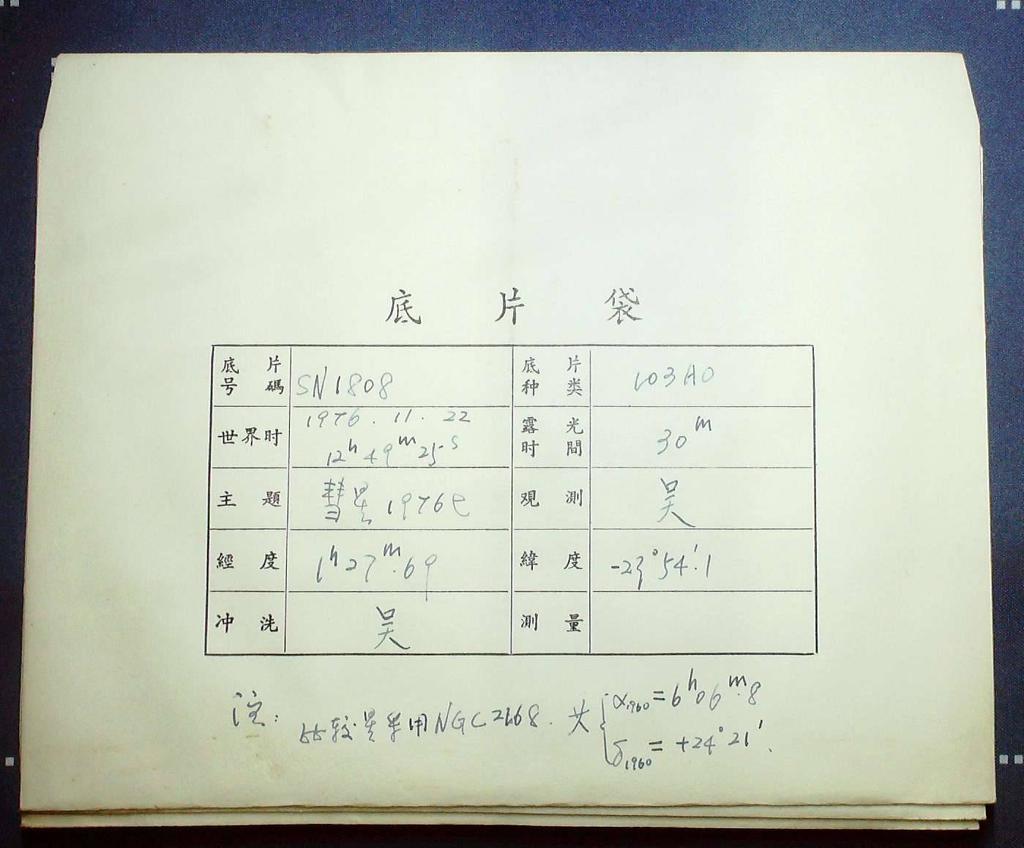 底 片 袋
底片号碼 SN1808 底片种类 103AO
世界时 1976.11.22 12ʰ49ᵐ25ˢ 露光时間 30ᵐ
主題 彗星1976e 观測 吴
經度 1ʰ27ᵐ.69 緯度 -23°54′.1
冲洗 吴 測量
注: 比较星采用NGC2168. 其 { α₁₉₆₀=6ʰ06ᵐ.8
δ₁₉₆₀=+24°21′.